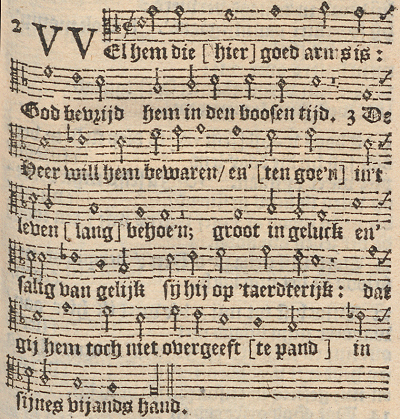 2 VVEl hem die [ hier] goed arm sis :
God bevrijd hem in den boosen tijd. 3 De
Heer will hem bewaren/ en' [ten goe'n] in't
leven [ lang] behoe'n; groot in geluck en'
salig van gelijk sy hij op 'taerdterijk : dat
gij hem toch niet overgeeft [te pand ] in
sijnes vijands hand.